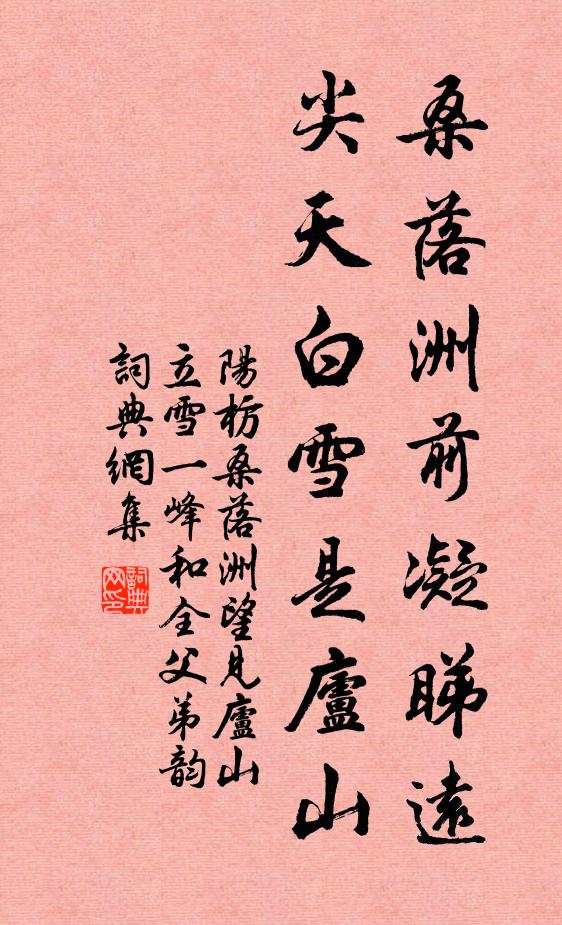 桑落洲前凝睇遠
尖天白雪是廬山
陽枋桑落洲望見廬山
立雪一峰和全父弟韵
詞典網集
詞典
网印